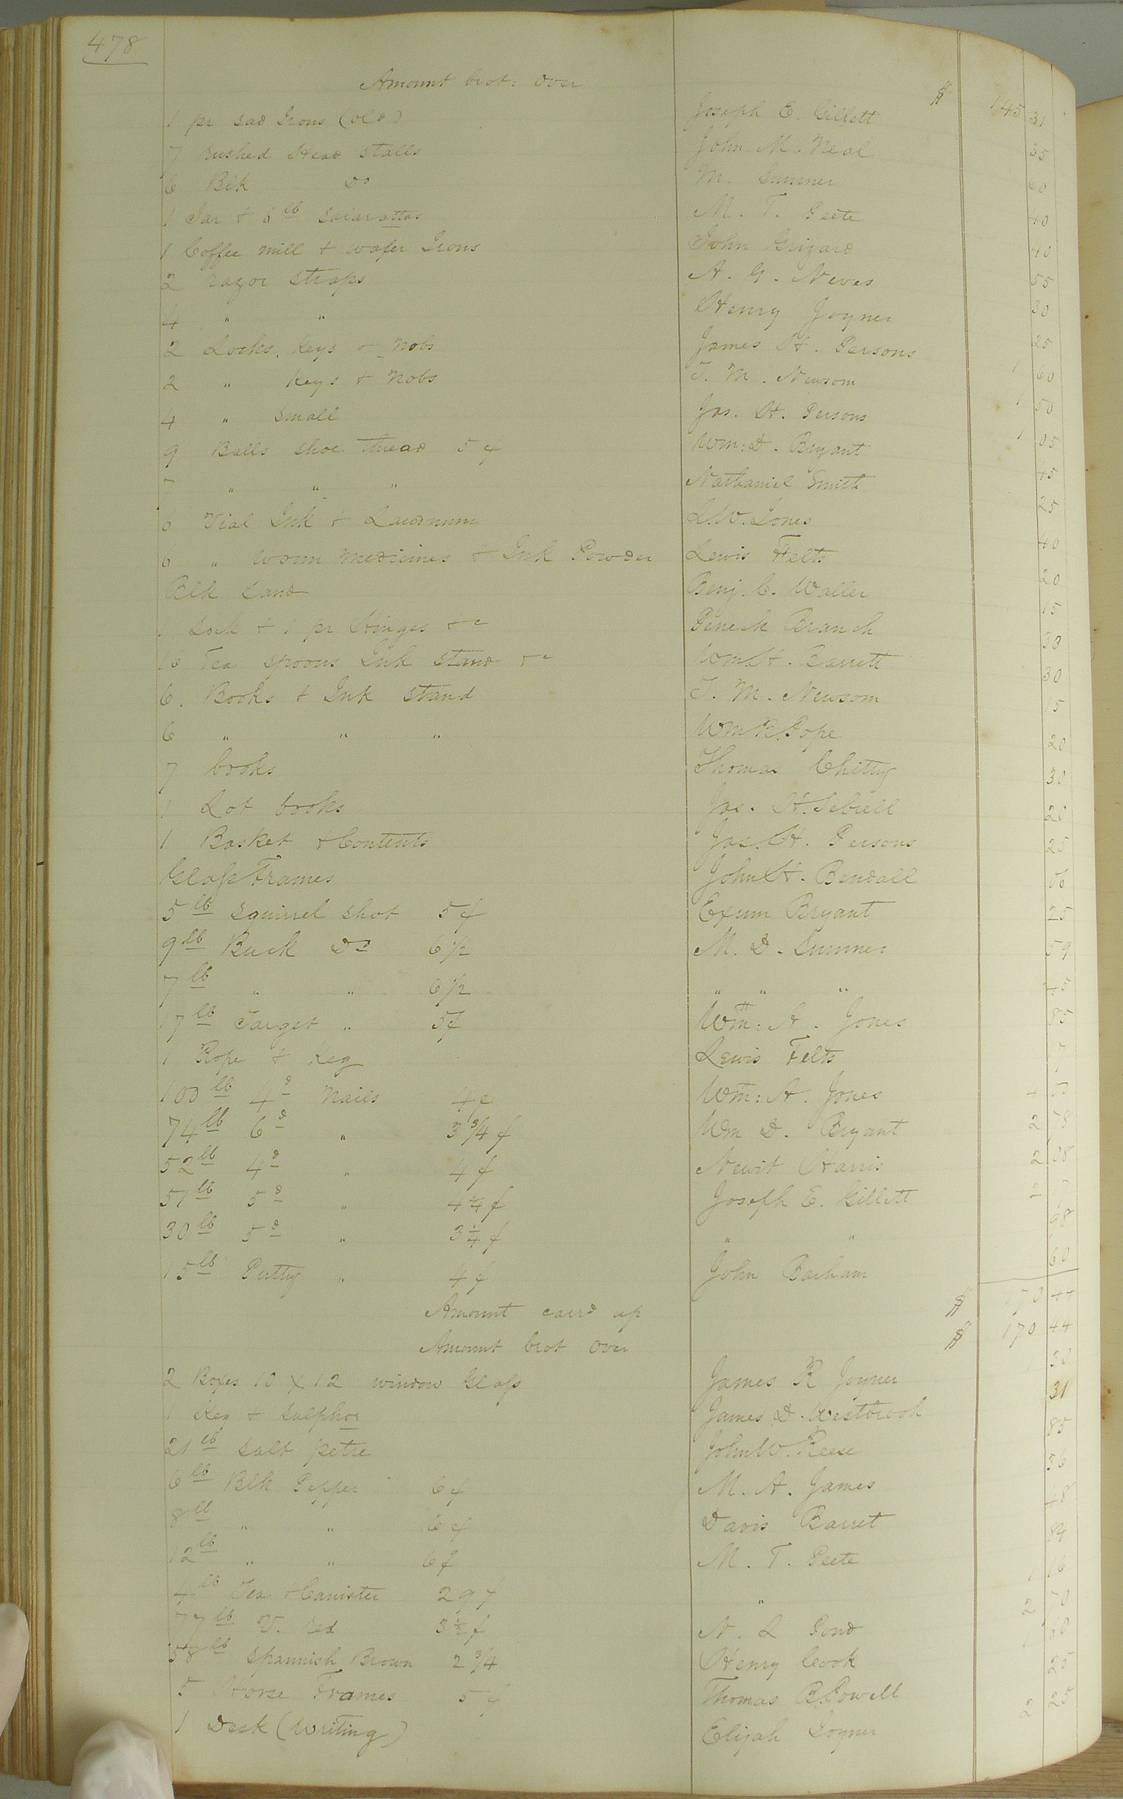 478
Amount brot. over $ 145 31
1 pr sad Irons (old) Joseph E. Gillett 35
7 rushed Head stalls John M. Neal 60
6 Blk Do M. Sumner 40
1 Jar & 6 lb salarattas M. T. Peete 40
1 Coffee mill & wafer Irons John Grizard 55
2 razor straps A. G. Neves 30
4 " " Henry Joyner 25
2 Locks, keys & Nobs James H. Persons 1 60
2 " keys & Nobs T. M. Newsom 1 50
4 " small Jas. H. Persons 1 05
9 Balls shoe thread 5 ¢ Wm: D. Bryant 45
7 " " " Nathaniel Smith 25
6 Vial Ink & Laudnum L.W. Jones 40
6 " worm medicines & Ink Powder Lewis Felts 20
Blk sand Benj. C. Waller 15
1 Lock & 1 pr Hinges &c Branch 30
Tea spoons Ink stand &c Wm H. Barrett 30
6. Books & Ink stand T. M. Newsom 15
6 " " " Wm R. Pope 20
7 books Thomas Chitty 30
1 Lot books Jas. H. Sebrell
1 Basket & Contents Jas. H. Persons 25
Glass Frames John H. Bendall
5 lb squirrel shot 5 ¢ Exum Bryant 25
9 lb Buck Do 6 1/2 M. D. Sumner 59
7 lb " " 6 1/2 " " " 45
17 lb Target " 5 ¢ Wm: A. Jones 85
1 Rope & Keg Lewis Felts
100 lb 4d Nails 4 c Wm: A. Jones 4
74 lb 6d " 3 3/4 ¢ Wm D. Bryant 2 78
52 lb 4d " 4 ¢ Newit Harris 2 08
51 lb 5d " 4 1/4 ¢ Joseph E. Gillett 2
30 lb 5d " 3 1/4 ¢ " " 98
15 lb Putty " 4 ¢ John Barham 60
Amount carrd up $ 170 44
Amount brot over $ 170 44
2 Boxes 10 X 12 window Glass James R Joyner 50
1 Keg & sulphor James D. Westbrook 31
21 lb salt petre John W. Reese 85
6 lb Blk Pepper 6 ¢ M. A. James 36
8 lb " " 6 ¢ Davis Barret 48
12 lb " " 6 ¢ M. T. Peete 84
lb Tea & Canister 29 ¢ " 1 16
77 lb V. Red 3 1/2 ¢ N. L Pond 2 70
58 lb Spannish Brown 2 3/4 Henry Cook 1 60
5 Horse Frames 5 ¢ Thomas B. Powell 25
1 Desk (Writing) Elijah Joyner 2 25